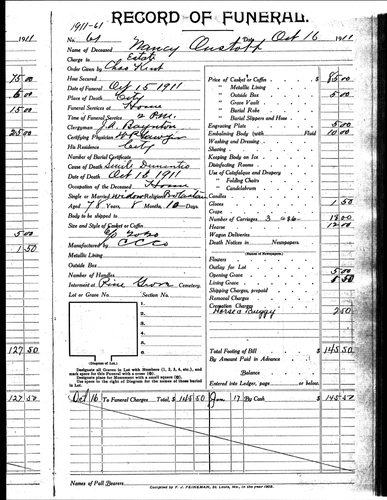 1911-61
RECORD OF FUNERAL.
1911
No. 61
Date Oct 16 1911
Name of Deceased Nancy
Charge to Estate
Order Given by Chas
How Secured
Date of Funeral Oct 15 1911
Place of Death City
Funeral Services at Home
Time of Funeral Service 2 P.M.
Clergyman J.A.
Certifying Physician
His Residence City
Number of Burial Certificate
Cause of Death Senile
Date of Death Oct 10 1911
Occupation of the Deceased Home
Single or Married Widow Religion Protestant
Aged 78 Years, 8 Months, 10 Days
Body to be shipped to
Size and Style of Casket or Coffin
Manufactured by C C Co
Metallic Lining
Outside Box
Number of Handles
Interment at Pine Grove Cemetery.
Lot or Grave No. Section No.
1.
2.
3.
4.
5.
6.
(Diagram of Lot.)
Designate all Graves in Lot with Numbers (1, 2, 3, 4, etc.), and
mark space for this Funeral with a cross (X).
Designate place for Monument with a small square (□).
Use the space to right of Diagram for the names of those buried
in Lot.
Price of Casket or Coffin $ 85 00
" Metallic Lining
" Outside Box 5 00
" Grave Vault
" Burial Robe
" Burial Slippers and Hose
Engraving Plate 5 00
Embalming Body (with Fluid) 10 00
Washing and Dressing
Shaving
Keeping Body on Ice
Disinfecting Rooms
Use of Catafalque and Drapery
" Folding Chairs
" Candelabrum
Candles
Gloves 1 50
Crape
Number of Carriages 3 @6- 18 00
Hearse 12 00
Wagon Deliveries
Death Notices in Newspapers.
(Names of Newspapers)
Flowers
Outlay for Lot
Opening Grave 5 00
Lining Grave 1 50
Shipping Charges, prepaid
Removal Charges
Cremation Charges
Horse & Buggy 2 50
Total Footing of Bill $ 145 50
By Amount Paid in Advance
Balance
Entered into Ledger, page or below.
75 00
5 00
15 00
25 00
5 00
1 50
127 50
127 50
Oct 16 To Funeral Charges Total, $ 145 50 Jan 17 By Cash $ 145 50
Names of Pall Bearers
Compiled by F. J. FEINEMAN, St. Louis, Mo., in the year 1903.